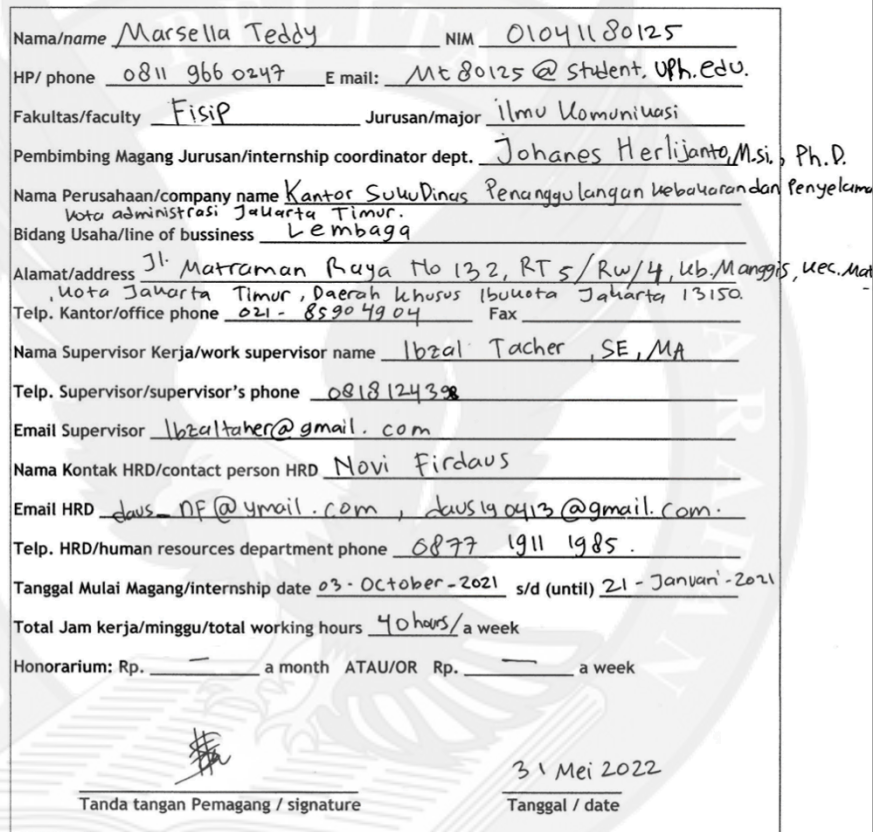 PELITA
HARAPAN
Nama/name Marsella Teddy NIM 01041180125
HP/ phone 0811 966 0247 E mail: Mt80125@student.uph.edu.
Fakultas/faculty Fisip Jurusan/major ilmu Komunikasi
Pembimbing Magang Jurusan/internship coordinator dept. Johanes Herlijanto, M.si., Ph.D.
Nama Perusahaan/company name Kantor Suku Dinas Penanggulangan kebakaran dan Penyelama
kota administrasi Jakarta Timur.
Bidang Usaha/line of bussiness Lembaga
Alamat/address Jl. Matraman Raya No 132, RT 5/RW/4, kb. Manggis, kec. Mat
, Kota Jakarta Timur, Daerah khusus Ibukota Jakarta 13150.
Telp. Kantor/office phone 021- 85904904 Fax
Nama Supervisor Kerja/work supervisor name Ibzal Tacher, SE, MA
Telp. Supervisor/supervisor's phone 0818124398
Email Supervisor Ibzaltaher@gmail.com
Nama Kontak HRD/contact person HRD Novi Firdaus
Email HRD daus_nf@ymail.com, daus190413@gmail.com.
Telp. HRD/human resources department phone 0877 1911 1985.
Tanggal Mulai Magang/internship date 03-October-2021 s/d (until) 21-Januari-2021
Total Jam kerja/minggu/total working hours 40 hours/ a week
Honorarium: Rp. — a month ATAU/OR Rp. — a week
31 Mei 2022
Tanda tangan Pemagang / signature Tanggal / date